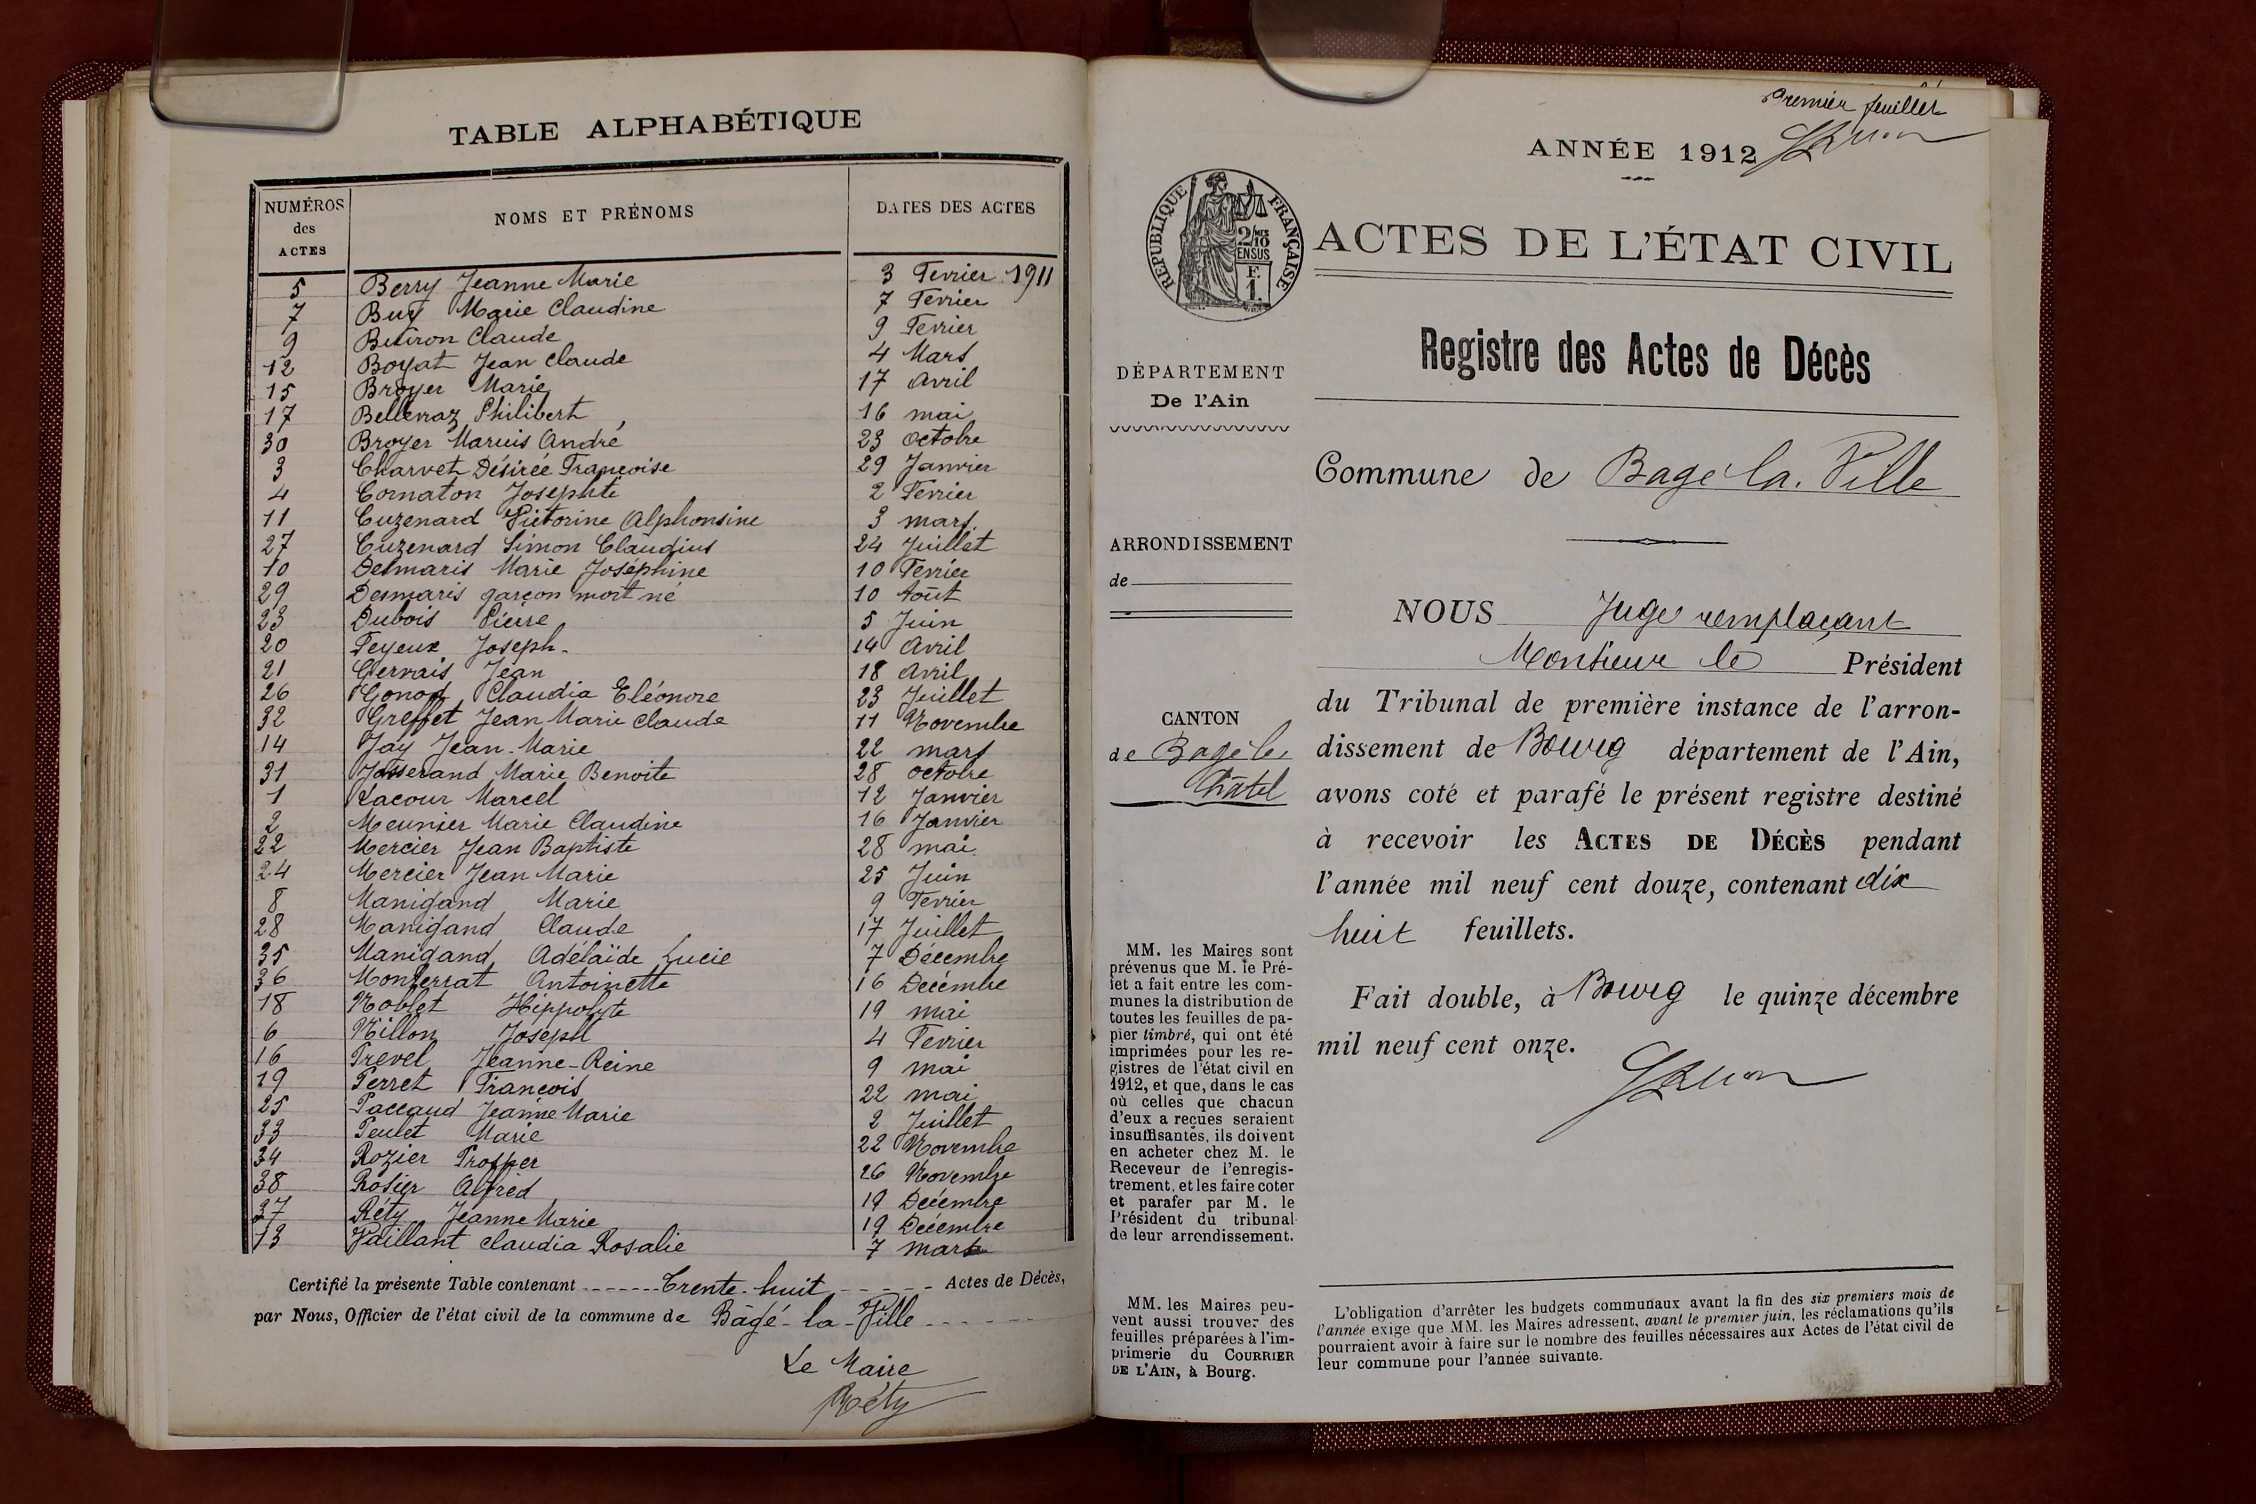 TABLE ALPHABÉTIQUE
NUMÉROS des ACTES NOMS ET PRÉNOMS DATES DES ACTES
5 Berry Jeanne Marie 3 Fevrier 1911
7 Buy Marie Claudine 7 Fevrier
9 Buiron Claude 9 Fevrier
12 Boyat Jean Claude 4 Mars
15 Broyer Marie 17 Avril
17 Bellevraz Philibert 16 mai
30 Broyer Marius André 23 Octobre
3 Charvet Désirée Françoise 29 Janvier
4 Cornaton Josephte 2 Fevrier
11 Cuzenard Victorine Alphonsine 3 mars
27 Cuzenard Simon Claudius 24 Juillet
10 Desmaris Marie Joséphine 10 Fevrier
29 Desmaris garçon mort né 10 Août
23 Dubois Pierre 5 Juin
20 Feyeux Joseph 14 Avril
21 Gervais Jean 18 Avril
26 Gonod Claudia Eléonore 23 Juillet
32 Greffet Jean Marie Claude 11 Novembre
14 Jay Jean-Marie 22 mars
31 Josserand Marie Benoite 28 octobre
1 Lacour Marcel 12 Janvier
2 Meunier Marie Claudine 16 Janvier
22 Mercier Jean Baptiste 28 mai
24 Mercier Jean Marie 25 Juin
8 Manigand Marie 9 Fevrier
28 Manigand Claude 17 Juillet
35 Manigand Adélaïde Lucie 7 Décembre
36 Monterrat Antoinette 16 Décembre
18 Noblet Hippolyte 19 mai
6 Nillon Joseph 4 Fevrier
16 Prevel Jeanne-Reine 9 mai
19 Perret François 22 mai
25 Paccaud Jeanne Marie 2 Juillet
33 Peulet Marie 22 Novembre
34 Rozier Prosper 26 Novembre
38 Rosier Alfred 19 Décembre
37 Réty Jeanne Marie 19 Décembre
13 Vaillant Claudia Rosalie 7 mars
Certifié la présente Table contenant Trente-huit Actes de Décès,
par Nous, Officier de l'état civil de la commune de Bâgé-la-Ville
Le Maire
Réty
Premier feuillet
ANNÉE 1912
RÉPUBLIQUE FRANÇAISE
2/10 EN SUS
F. 1.
ACTES DE L'ÉTAT CIVIL
Registre des Actes de Décès
DÉPARTEMENT
De l'Ain
Commune de Bagé la Ville
ARRONDISSEMENT
de
CANTON
de Bagé le
Châtel
NOUS Juge remplaçant
Monsieur le Président
du Tribunal de première instance de l'arron-
dissement de Bourg département de l'Ain,
avons coté et parafé le présent registre destiné
à recevoir les ACTES DE DÉCÈS pendant
l'année mil neuf cent douze, contenant dix
huit feuillets.
Fait double, à Bourg le quinze décembre
mil neuf cent onze.
MM. les Maires sont
prévenus que M. le Pré-
fet a fait entre les com-
munes la distribution de
toutes les feuilles de pa-
pier timbré, qui ont été
imprimées pour les re-
gistres de l'état civil en
1912, et que, dans le cas
où celles que chacun
d'eux a reçues seraient
insuffisantes, ils doivent
en acheter chez M. le
Receveur de l'enregis-
trement, et les faire coter
et parafer par M. le
Président du tribunal
de leur arrondissement.
MM. les Maires peu-
vent aussi trouver des
feuilles préparées à l'im-
primerie du COURRIER
DE L'AIN, à Bourg.
L'obligation d'arrêter les budgets communaux avant la fin des six premiers mois de
l'année exige que MM. les Maires adressent, avant le premier juin, les réclamations qu'ils
pourraient avoir à faire sur le nombre des feuilles nécessaires aux Actes de l'état civil de
leur commune pour l'année suivante.